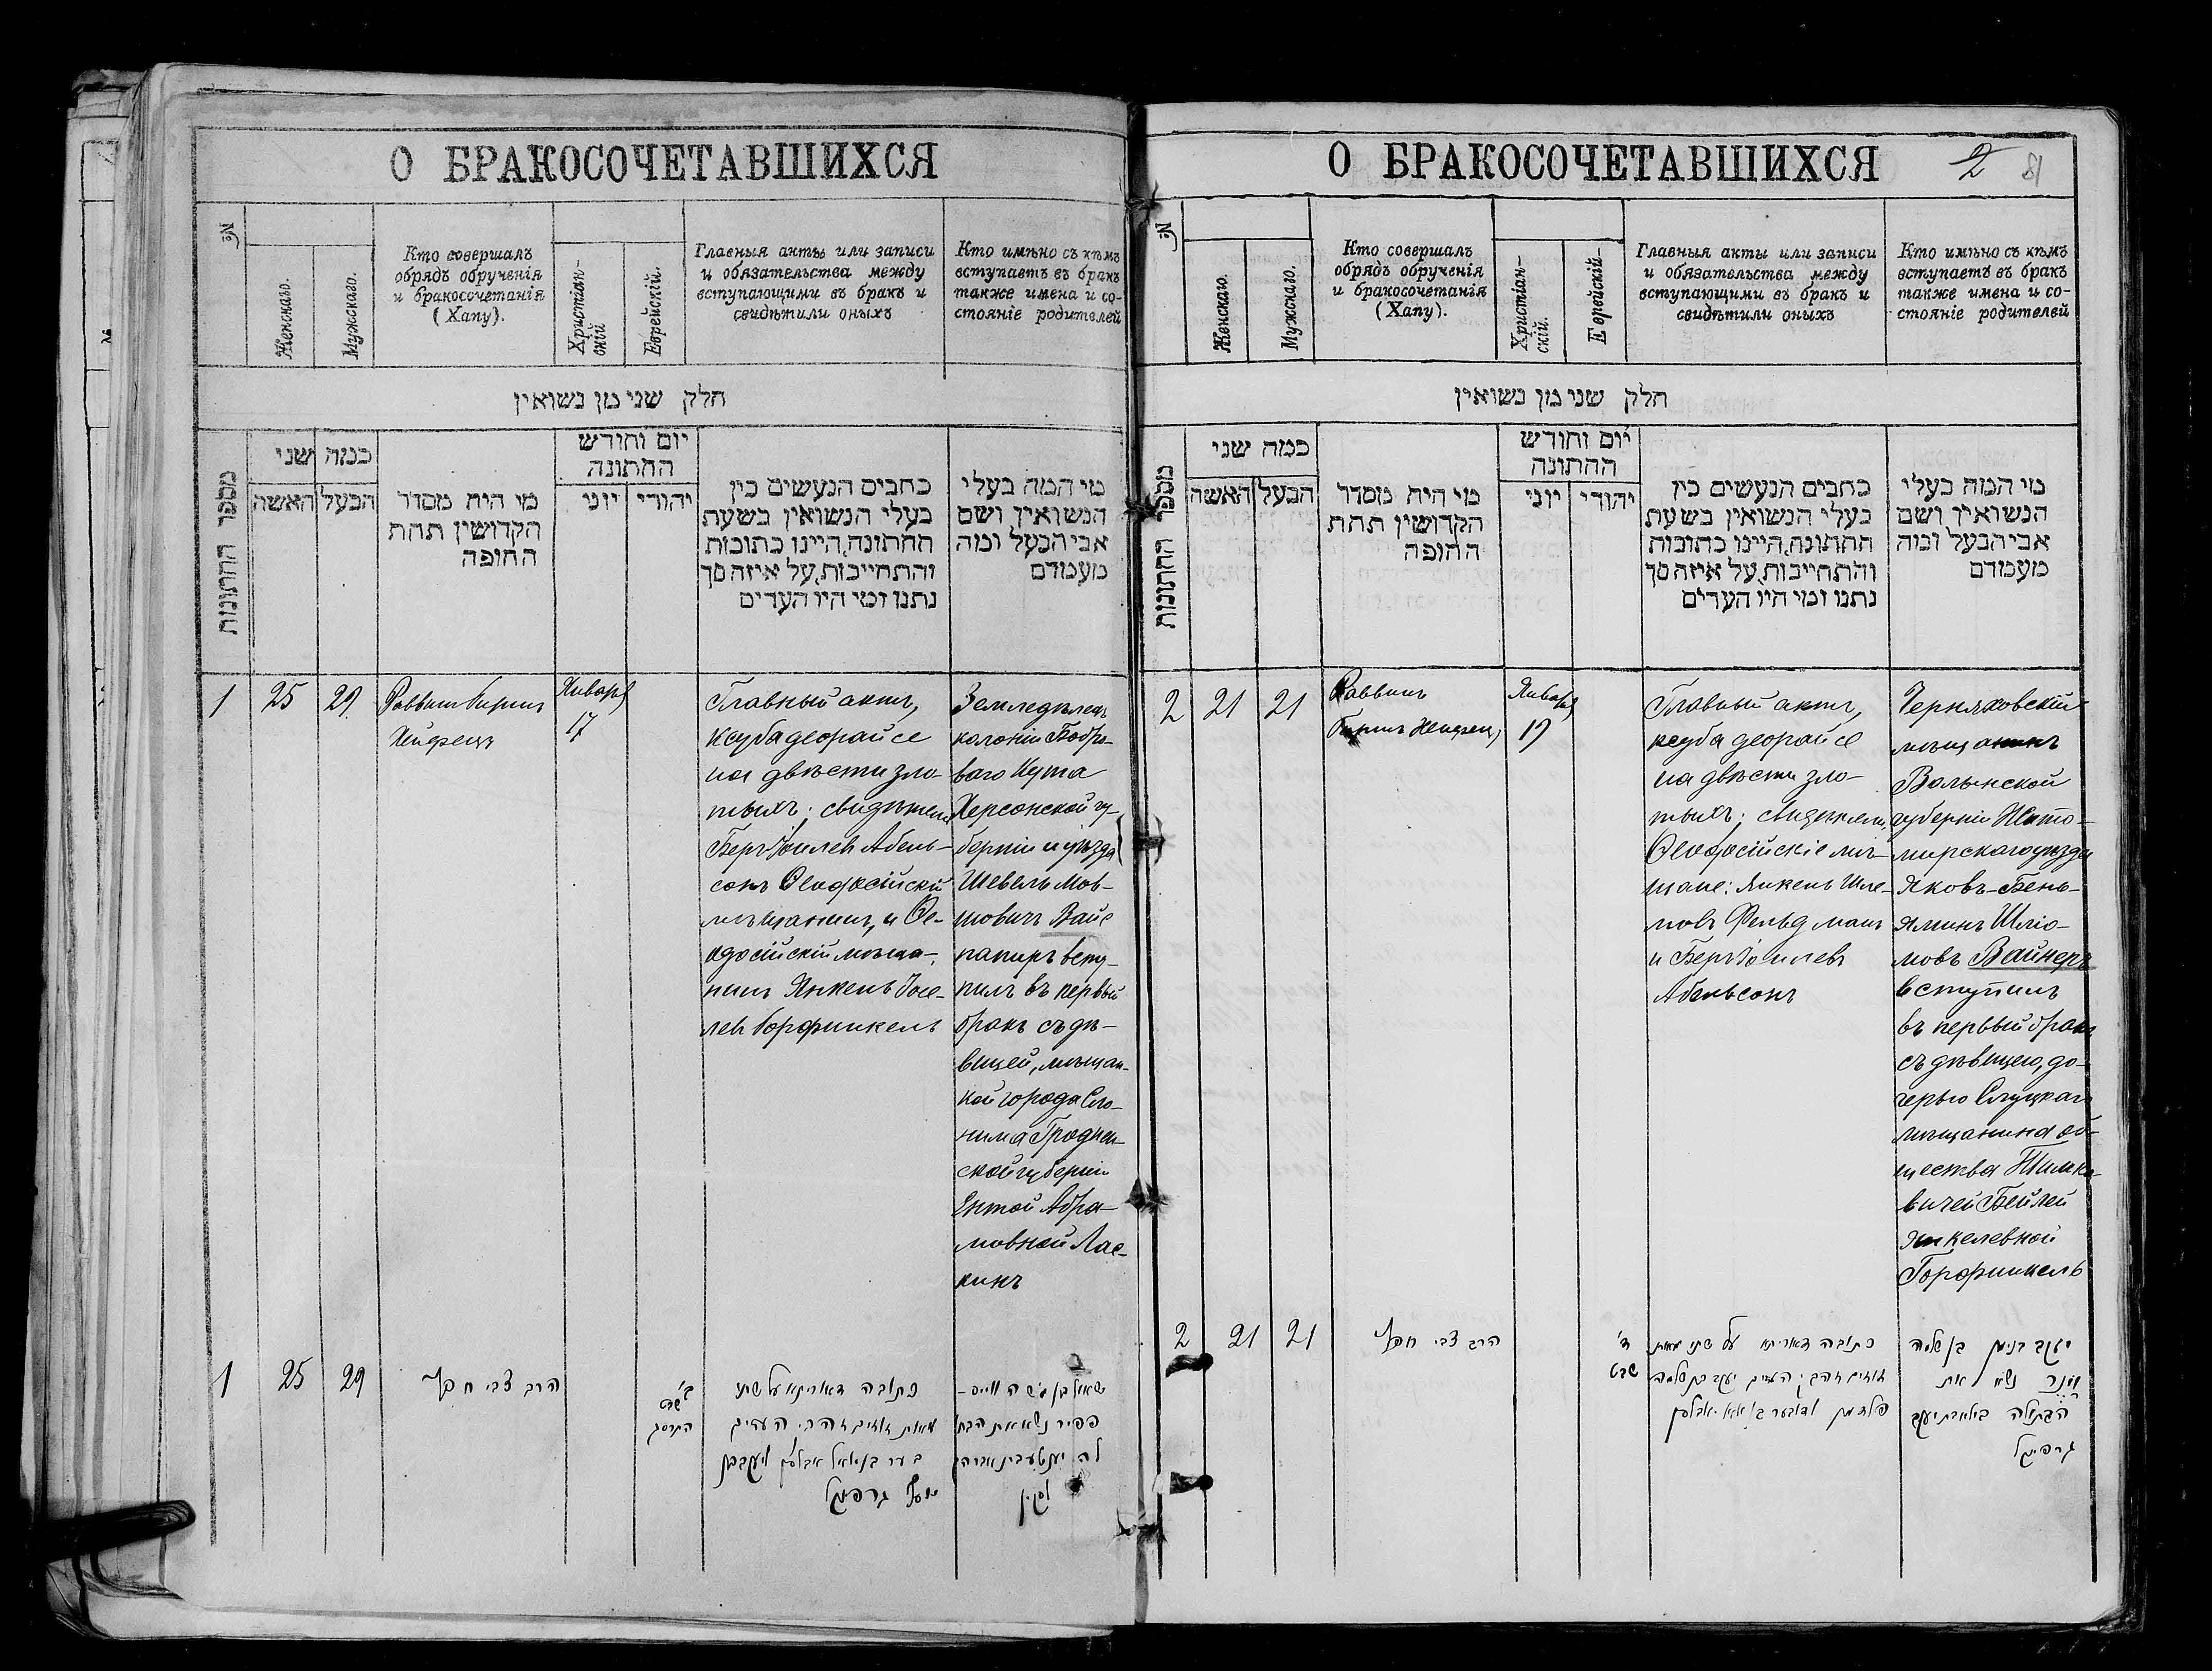 О БРАКОСОЧЕТАВШИХСЯ
№
Женскаго.
Мужскаго.
Кто совершалъ
обрядъ обрученія
и бракосочетанія
(Хапу).
Христіан-
скій
Еврейскій.
Главныя акты или записи
и обязательства между
вступающими въ бракъ и
свидѣтили оныхъ
Кто имѣно съ кѣмъ
вступаетъ въ бракъ
также имена и со-
стояніе родителей
חלק שני מן נשואין
מספר החתונות
כמה שני
האשה
הבעל
מי היה מסדר
הקדושין תחת
החופה
יום וחודש
החתונה
יוני
יהודי
כתבים הנעשים בין
בעלי הנשואין בשעת
החתונה, היינו כתובות
והתחייבות, על איזה סך
נתנו ומי היו העדים
מי המה בעלי
הנשואין ושם
אבי הבעל ומה
מעמדם
1
25
29.
Раввинъ Гиршъ
Хейфецъ
Января
17
Главный актъ,
ксуба деорайсе
на двѣсти зло-
тыхъ; свидѣтели
Беръ Іоилевъ Абель-
сонъ Ѳеодосійскій
мѣщанинъ, и Ѳе-
одосійскій мѣща-
нинъ Янкель Іосе-
левъ Горфинкель
Земледѣлецъ
колоніи Бобро-
ваго Кута
Херсонской гу-
берніи и уѣзда
Шевель Мов-
шовичъ Вайс
папиръ всту-
пилъ въ первый
бракъ съ дѣ-
вицей, мѣщан-
кой города Сло-
нима Гроднен-
ской губерніи
Ентой Абра-
мовной Лас-
кинъ
1
25
29
הרב צבי חפץ
ב'
שבט
התרסג
כתובה דאוריתא על שתי
מאות זוזים והעדים
בער בן יואל אבלסן ויעקב בן
יוסף גרפינקל
שאול בן משה ווייס-
פפיר נשא את הבתו
לה יענטע בת אברהם
לסקין
О БРАКОСОЧЕТАВШИХСЯ
2
81
№
Женскаго.
Мужскаго.
Кто совершалъ
обрядъ обрученія
и бракосочетанія
(Хапу).
Христіан-
скій.
Еврейскій-
Главныя акты или записи
и обязательства между
вступающими въ бракъ и
свидѣтили оныхъ
Кто имѣно съ кѣмъ
вступаетъ въ бракъ
также имена и со-
стояніе родителей
חלק שני מן נשואין
מספר החתונות
כמה שני
האשה
הבעל
מי היה מסדר
הקדושין תחת
החופה
יום וחודש
החתונה
יוני
יהודי
כתבים הנעשים בין
בעלי הנשואין בשעת
החתונה, היינו כתובות
והתחייבות, על איזה סך
נתנו ומי היו העדים
מי המה בעלי
הנשואין ושם
אבי הבעל ומה
מעמדם
2
21
21
Раввинъ
Гиршъ Хейфецъ
Января
19
Главный актъ,
ксуба деорайсе
на двѣсти зло-
тыхъ; свидѣтели,
Ѳеодосійскіе мѣ-
щане: Янкель Шле-
мовъ Фельдманъ
и Беръ Іоилевъ
Абельсонъ
Черняховскій
мѣщанинъ
Волынской
губерніи Жито-
мирскаго уѣзда
Яковъ-Бень-
яминъ Шліо-
мовъ Вайнеръ
вступилъ
въ первый бракъ
съ дѣвицею, до-
черью Слуцкаго
мѣщанина об-
щества Тимко-
вичей Бейлей
Янкелевной
Горфинкель
2
21
21
הרב צבי חפץ
ד'
שבט
כתובה דאוריתא על שתי מאות
זוזים והעדים יעקב בן שלמה
פלדמן ודובער בן יואל אבלסן
יעקב בנימן בן שלמה
וינר נשא את
הבתולה ביילא בת יעקב
גרפינקל